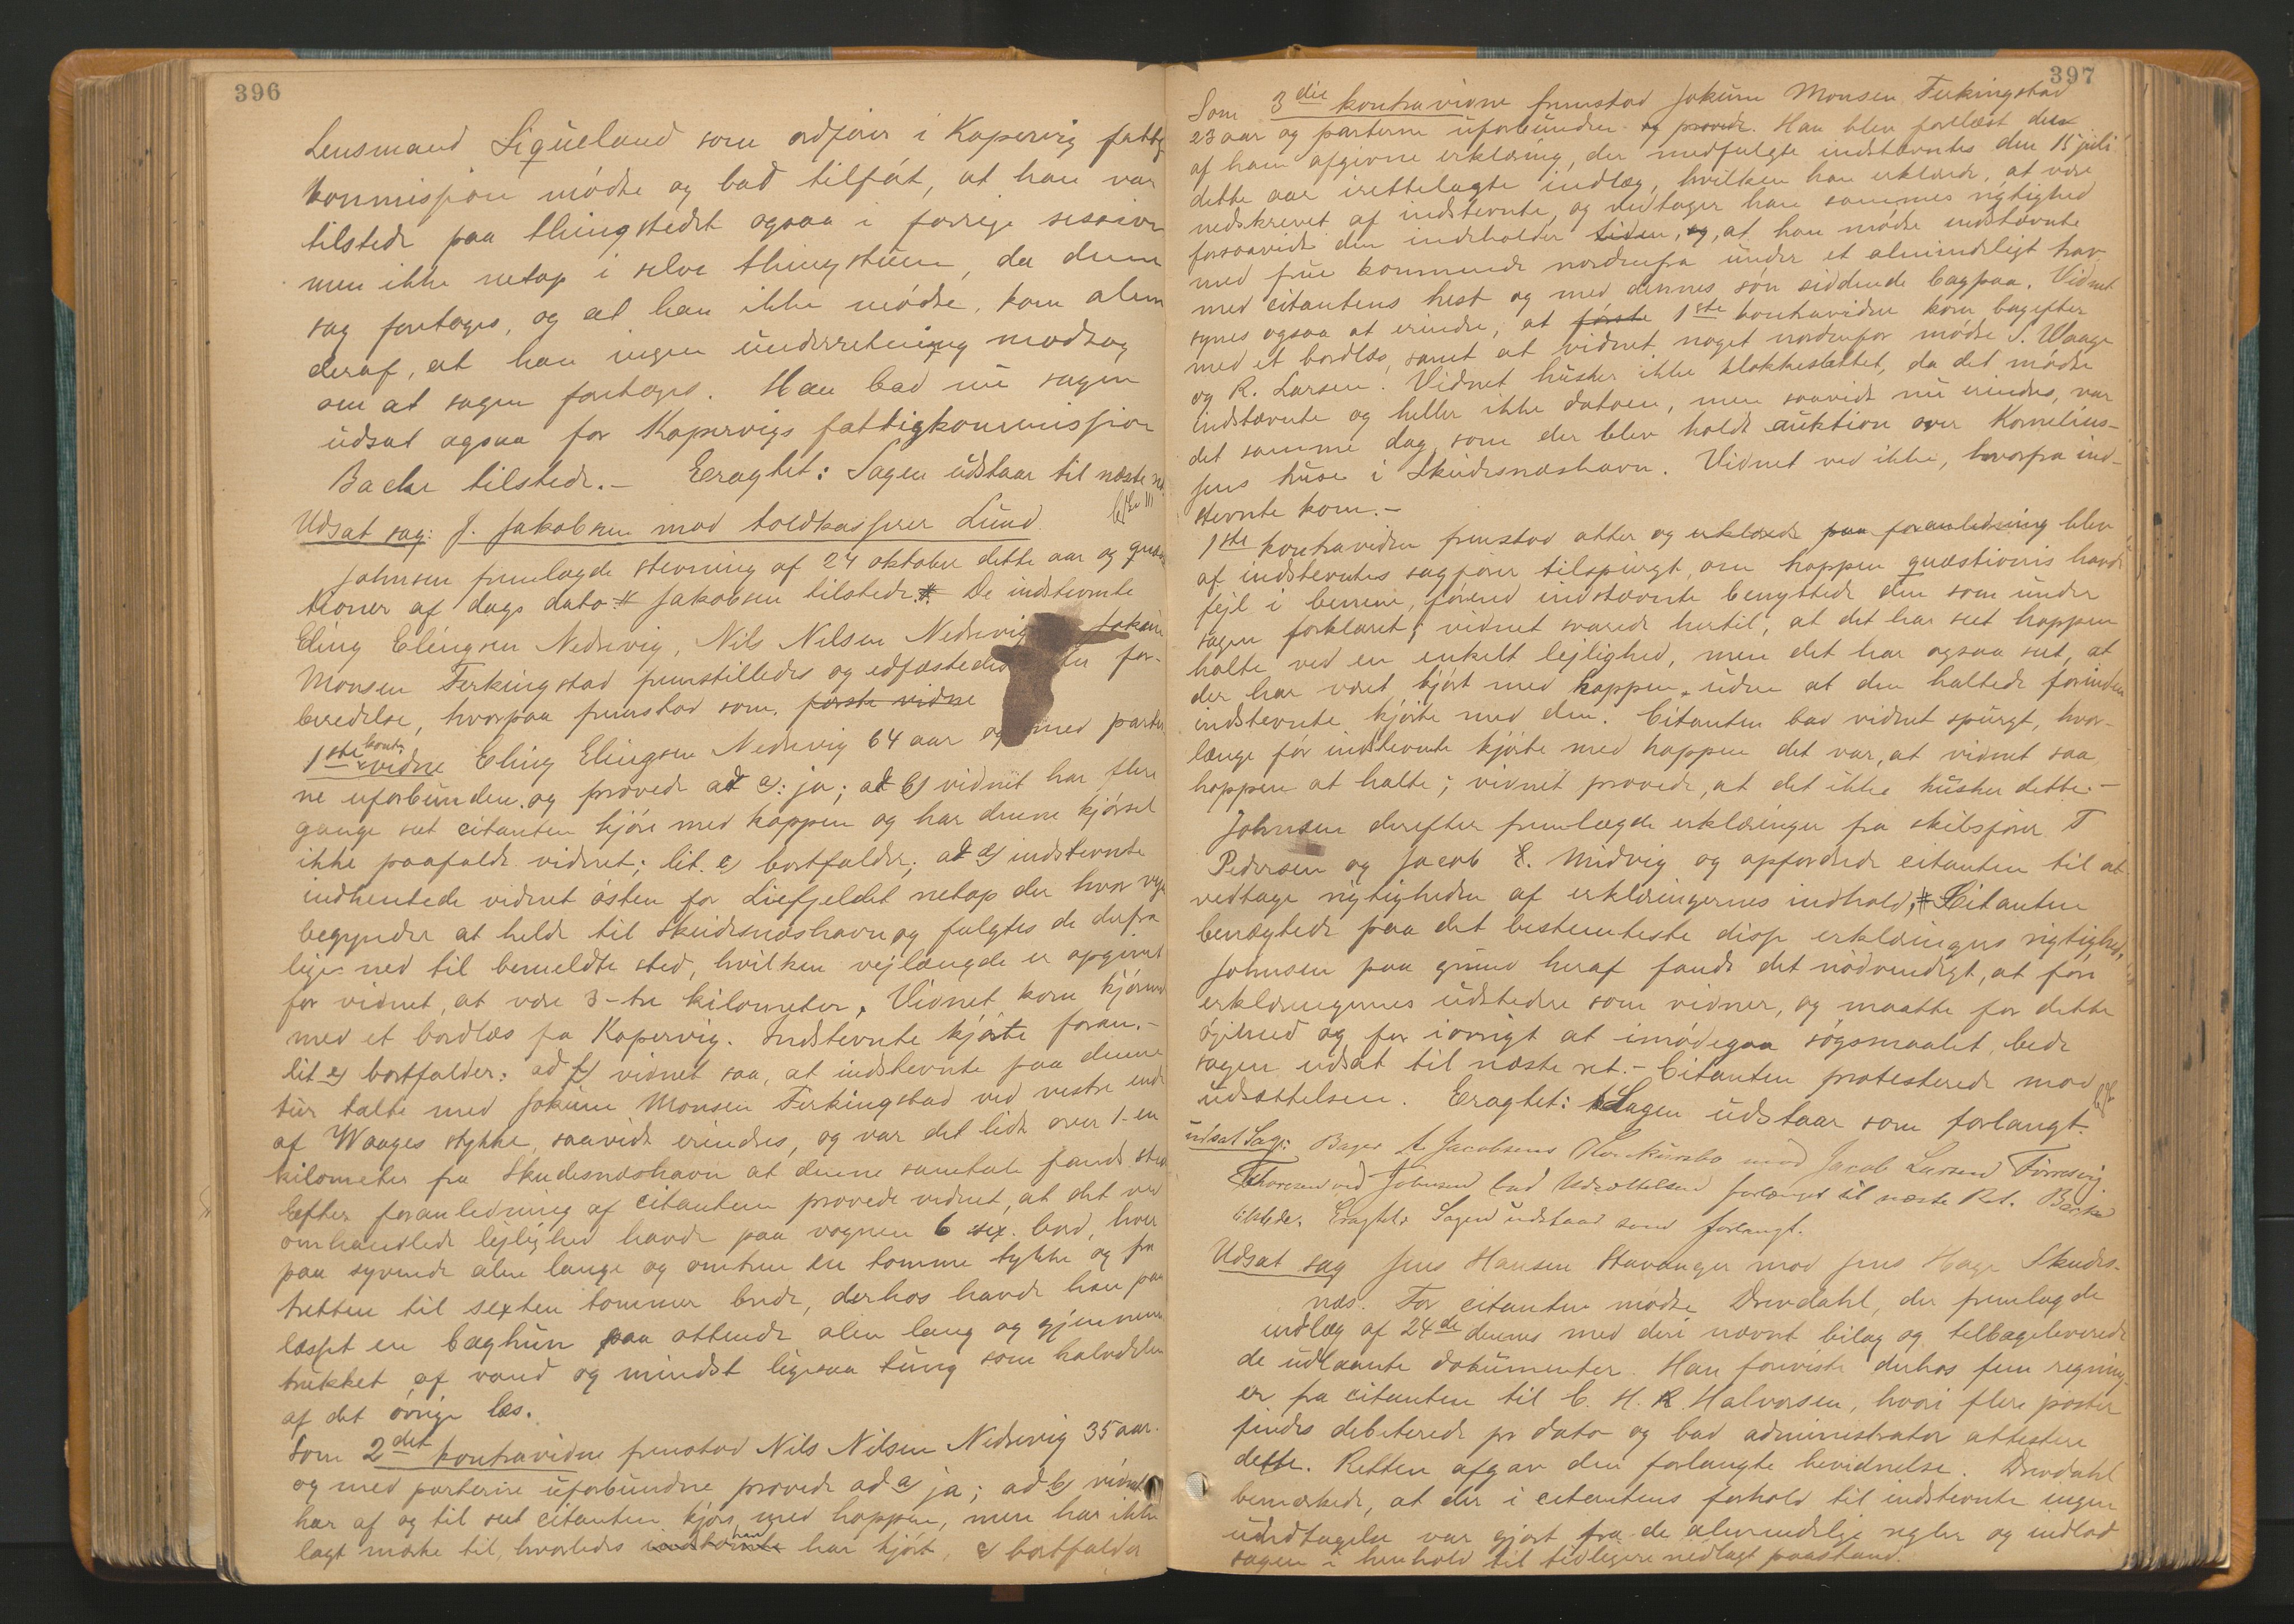 396
Lensmand Liqueland som ordfører i Kopervig fattig
kommissjon mødte og bad tilført, at han var
tilstede paa thingstedet ogsaa i forrige session
men ikke netop i selve thingstuen, da denne
sag foretoges, og at han ikke mødte, kom alene
deraf, at han ingen underretning modtog
om at sagen foretoges. Han bad nu sagen
udsat ogsaa for Kopervigs fattigkommissjon
Bache tilstede.- Eragtet: Sagen udstaar til næste ret.
Udsat sag: J. Jakobsen mod toldkasserer Lund.
Johnsen fremlagde stevning af 24 oktober dette aar og quæs
tioner af dags dato. Jakobsen tilstede. De indstevnte
Eling Elingsen Nedrevig, Nils Nilsen Nedrevig Jokum
Monsen Ferkingstad fremstilledes og edfæstedes for-
beredelse, hvorpaa fremstod som første vidne
1ste kontravidne Eling Elingsen Nedrevig 64 aar og med parter
ne uforbunden og provede ad a): ja; ad b) vidnet har flere
gange seet citanten kjøre med hoppen og har denne kjørsel
ikke paafaldt vidnet; lit. c) bortfalder; ad d) indstevnte
indhentede vidnet østen for Liefjeldet netop der hvor vejen
begynder at helde til Skudesnæshavn og fulgtes de derfra
lige ned til bemeldte sted, hvilken vejlængde er opgivet
for vidnet, at være 3-tre kilometer. Vidnet kom kjørende
med et bordlæs fra Kopervig. Indstevnte kjørte foran.-
lit e) bortfalder: ad f) vidnet saa, at indstevnte paa denne
tur talte med Jokum Monsen Ferkingstad ved vestre ende
af Waages stykke, saavidt erindres, og var det lidt over 1-en
kilometer fra Skudesnæshavn at denne samtale fandt sted
Efter foranledning af citanten provede vidnet, at det ved
omhandlede lejlighed havde paa vognen 6 sex bord, hver
paa syvende alen lange og omtren en tomme tykke og fra
tretten til sexten tommer brede, derhos havde han paa
læsset en baghun paa ottende alen lang og gjennem
trukket af vand og mindst ligesaa tung som halvdelen
af det øvrige læs.
Som 2det kontravidne fremstod Nils Nilsen Nedrevig 35 aar.
og med parterne uforbundne provede ad a) ja; ad b) vidnet
har af og til seet citanten kjøre med hoppen, men har ikke
lagt mærke til, hvorledes indstevnte han har kjørt, c) bortfalder
397
Som 3die kontravidne fremstod Jokum Monsen Ferkingstad
23 aar og parterne uforbunden og provede. Han blev forelæst den
af ham afgivne erklæring, der medfulgte indstævntes den 15 juli
dette aar irettelagte indlæg, hvilken han erklærede, at være
nedskrevet af indstevnte, og vedtager han sammes rigtighed
forsaavidt den indeholder tiden, og, at han mødte indstævnte
med frue kommende nordenfra under et almindeligt trav
med citantens hest og med dennes søn siddende bagpaa. Vidnet
synes ogsaa at erindre, at første 1ste kontravidne kom bagefter
med et bordlæs, samt at vidnet noget nordenfor mødte S. Waage
og R. Larsen. Vidnet husker ikke klokkeslettet, da det mødte
indstævnte og heller ikke datoen, men saavidt nu erindres, var
det samme dag, som der blev holdt auktion over Kornelius-
sens huse i Skudesnæshavn. Vidnet ved ikke, hvorfra ind-
stevnte kom.-
1ste kontravidne fremstod atter og erklærede paa foranledning blev
af indstevntes sagfører tilspurgt, om hoppen quæstionis havde
fejl i benene, førend indstævnte benyttede den som under
sagen forklaret; vidnet svarede hertil, at det har seet hoppen
halte ved en enkelt lejlighed, men det har ogsaa seet, at
der har været kjørt med hoppen, uden at den haltede forinden
indstevnte kjørte med den. Citanten bad vidnet spurgt, hvor-
længe før indstevnte kjørte med hoppen det var, at vidnet saa
hoppen at halte; vidnet provede, at det ikke husker dette.-
Johnsen derefter fremlægde erklæringer fra skibsfører T
Pedersen og Jacob E. Midvig og opfordrede citanten til at
vedtage rigtigheden af erklæringernes indhold, Citanten
benægtede paa det bestemteste disse erklæringers rigtighed,
Johnsen paa grund heraf fandt det nødvendigt, at føre
erklæringernes udstedere som vidner, og maatte for dette
øjemed og for iøvrigt at imødegaa søgsmaalet, bede
sagen udsat til næste ret.- Citanten protesterede mod
udsættelsen. Eragtet: Sagen udstaar som forlangt.
Udsat Sag: Bager A. Jacobsens Konkursbo mod Jacob Larsen Førresvig.
Thoresen ved Johnsen bad Udsættelsen forlænget til næste Ret. Bache
tilstede. Eragtet: Sagen udstaar som forlangt.
Udsat sag Jens Hansen Stavanger mod Jens Hage Skudes-
næs. For citanten mødte Drevdahl, der fremlagde
indlæg af 24de dennes med deri nævnt bilag og tilbageleverede
de udlaante dokumenter. Han foreviste derhos fem regning-
er fra citanten til C. H. R. Halvorsen, hvori flere poster
findes debiterede pr dato og bad administrator attestere
dette. Retten afgav den forlangte bevidnelse. Drevdahl
bemærkede, at der i citantens forhold til indstevnte ingen
undtagelse var gjort fra de almindelige regler og indlod
sagen i henhold til tidligere nedlagt paastand.